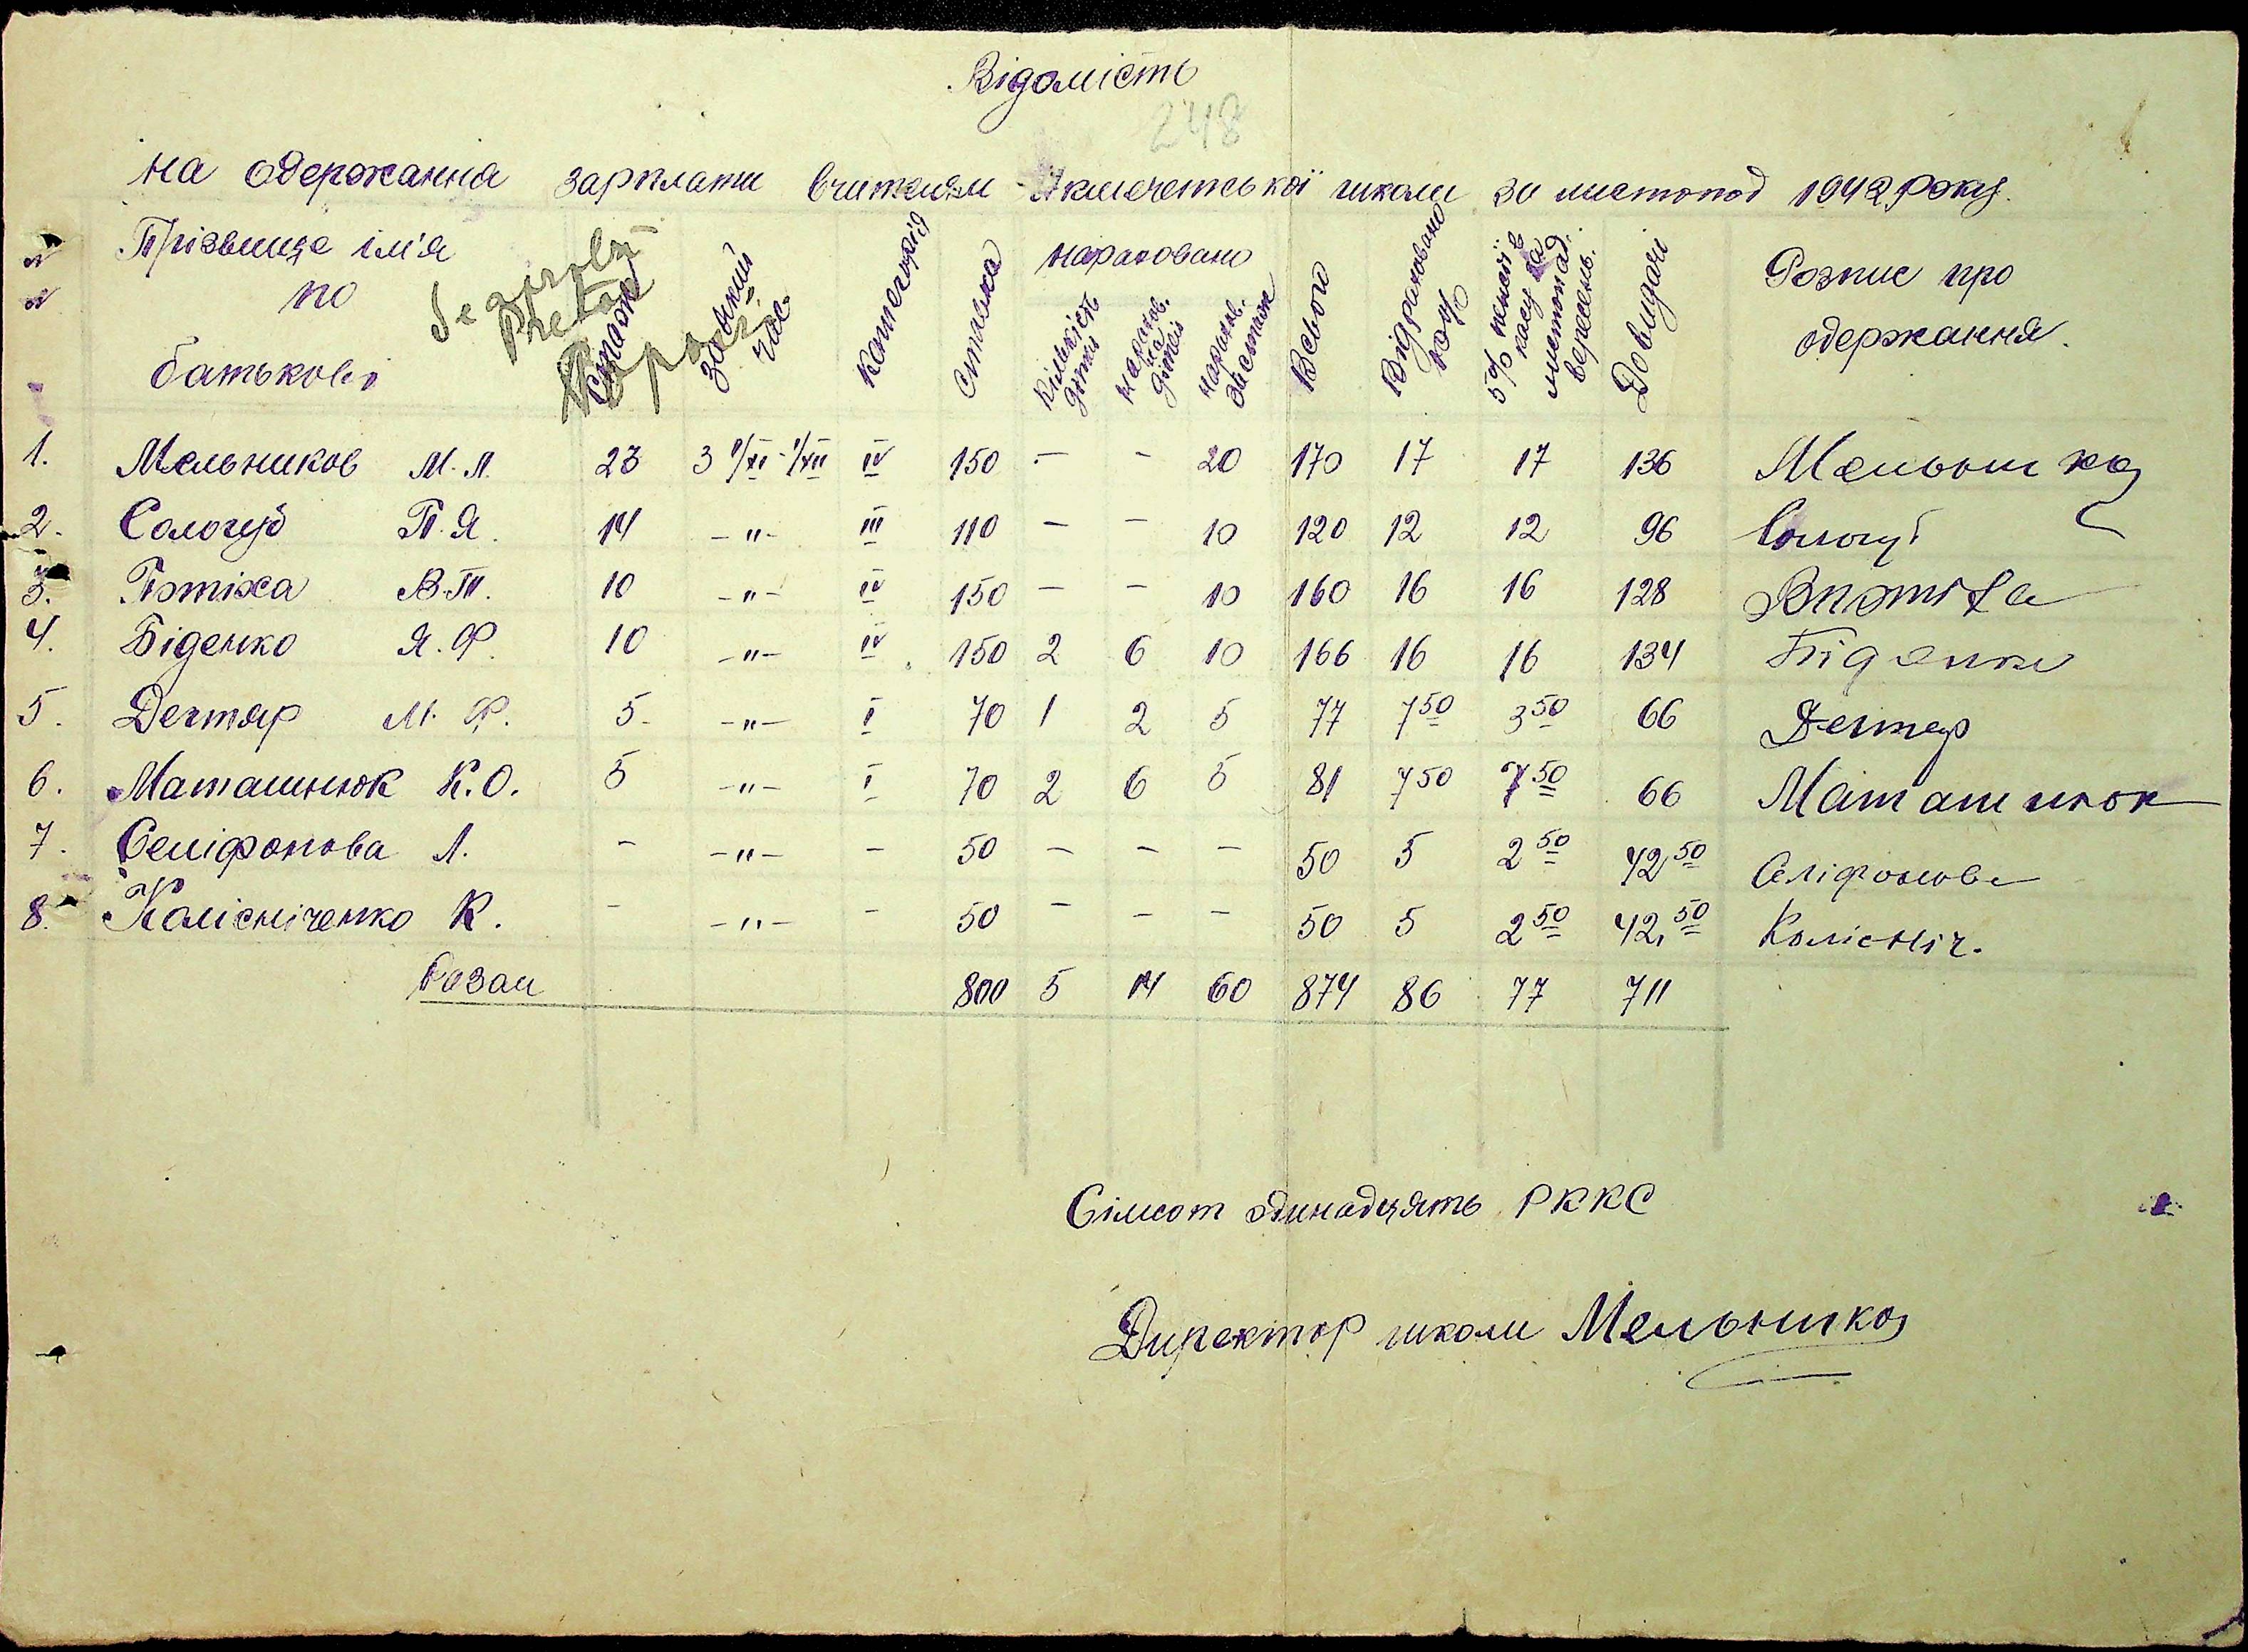 Відомість
248
на одержання зарплати вчителям школи за листопад 1942 року.
№ Прізвище ім'я
№ по
батькові
Стаж
За який час.
Категорія
Ставка
Нараховано
Кількість дітей
Нарахов. на дітей
Нарахов. за стаж
Всього
Відраховано 10%
5% пенсії в касу за листопад. вересень.
До видачі
Розпис про
одержання.
1. Мельников М. Л. 23 З 1/XI - 1/XII IV 150 - - 20 170 17 17 136 Мельников
2. Сологуб П. Я. 14 -"- III 110 - - 10 120 12 12 96 Сологуб
3. Потіха В. П. 10 -"- IV 150 - - 10 160 16 16 128 ВПотіха
4. Біденко Я. Ф. 10 -"- IV 150 2 6 10 166 16 16 134 Біденко
5. Дегтяр М. Ф. 5 -"- I 70 1 2 5 77 7 50 3 50 66 Дегтяр
6. Маташнюк К. О. 5 -"- I 70 2 6 5 81 7 50 7 50 66 Маташнюк
7. Селіфонова Л. - -"- - 50 - - - 50 5 2 50 42 50 Селіфонова
8. Колісніченко К. - -"- - 50 - - - 50 5 2 50 42, 50 Колісніч.
Разом 800 5 14 60 874 86 77 711
Сімсот одинадцять РККС
Директор школи Мельников